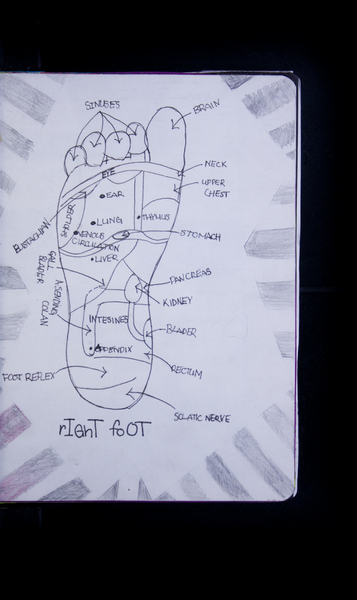 SINUSES
BRAIN
NECK
EYE
UPPER
CHEST
EAR
LUNG
THYMUS
STOMACH
VENOUS
CIRCULATION
LIVER
GALL
BLADER
PANCREAS
KIDNEY
ASENDING
COLAN
INTESINES
BLADER
APPENDIX
RECTUM
FOOT REFLEX
SCIATIC NERVE
rIGHT fOOT